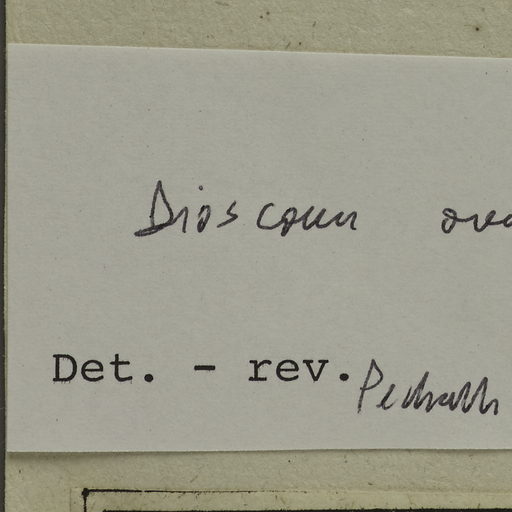 Dioscorea ova
Det. - rev. Pedralli